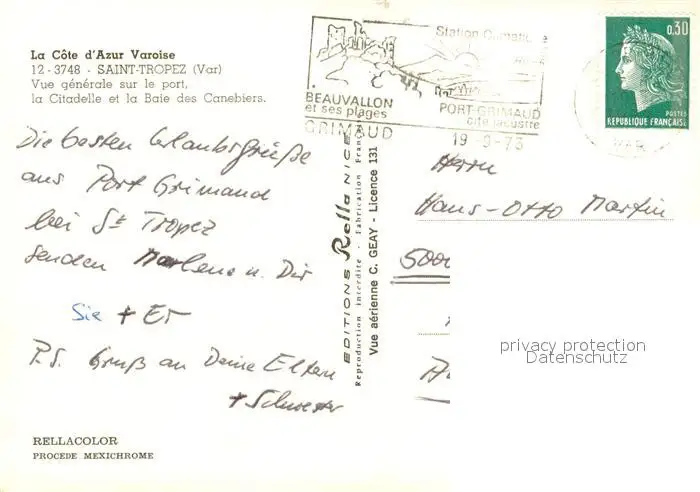 La Côte d'Azur Varoise
12-3748 - SAINT-TROPEZ (Var)
Vue générale sur le port,
la Citadelle et la Baie des Canebiers.
Die besten Urlaubsgrüße
aus Port Grimaud
bei St Tropez
senden Marlene u. Dir
Sie + Er
P.S. Gruß an Deine Eltern
+ Schwester
RELLACOLOR
PROCEDE MEXICHROME
EDITIONS Rella NICE
Reproduction interdite - Fabrication Fran
Vue aérienne C. GEAY - Licence 131
Station Climatique
BEAUVALLON
et ses plages
GRIMAUD
PORT-GRIMAUD
cité lacustre
19-9-73
VAR
0,30
POSTES
REPUBLIQUE FRANÇAISE
Herrn
Hans-Otto Martin
500
privacy protection
Datenschutz